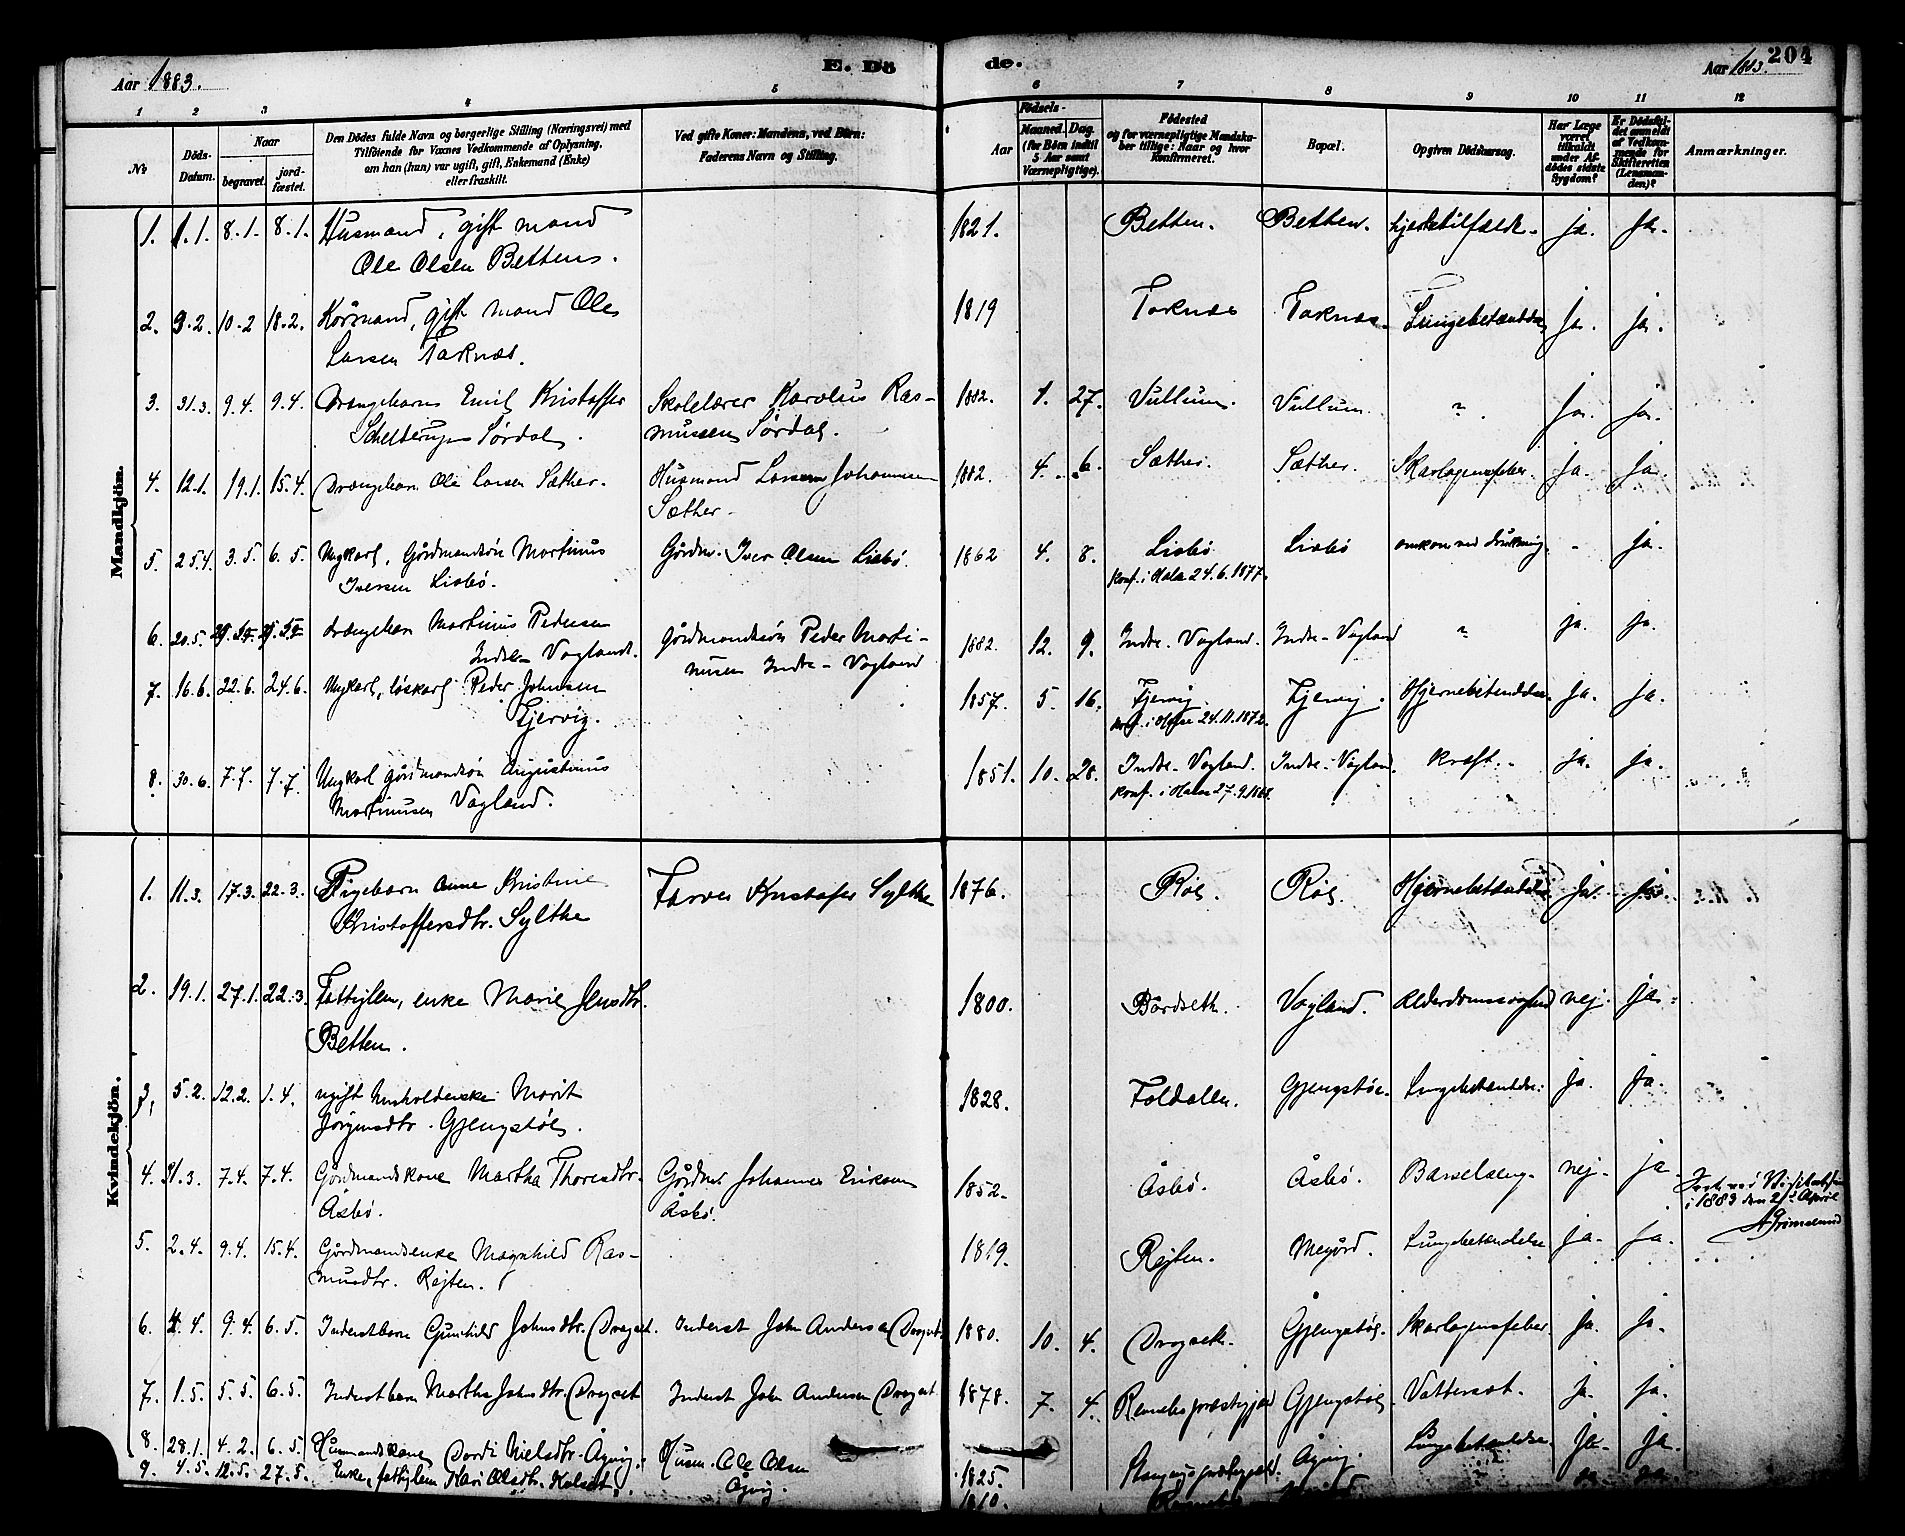 Aar 1883.
E. Dö
de.
204
Aar 1883.
1 2 3 4 5 6 7 8 9 10 11 12
№
Döds-Datum.
Naar
begravet.
jord-fæstet.
Den Dödes fulde Navn og borgerlige Stilling (Næringsvei) med
Tilföiende for Voxnes Vedkommende af Oplysning,
om han (hun) var ugift, gift, Enkemand (Enke)
eller fraskilt.
Ved gifte Koner: Mandens, ved Börn:
Faderens Navn og Stilling.
Födsels-
Aar
Maaned. Dag.
(for Börn indtil
5 Aar samt
Værnepligtige).
Födested
og for værnepligtige Mandska-
ber tillige: Naar og hvor
konfirmeret.
Bopæl.
Opgiven Dödsaarsag.
Har Læge
været
tilkaldt
under Af-
dödes sidste
Sygdom?
Er Dödsfal-
det anmeldt
af Vedkom-
mende for
Skifteretten
(Lensman-
den)?
Anmærkninger.
Mandkjön.
1. 1.1. 8.1. 8.1. Husmand, gift mand 1821. Betten. Betten. hjertetilfælde. ja. ja.
Ole Olsen Bettens.
2. 3.2. 10.2 18.2. Kårmand, gift mand Ole 1819 Torknæs Torknæs. Lungebetændelse ja. ja.
Larsen Torknæs.
3. 31.3. 9.4. 9.4. Drengebarn Emil Kristoffer Skolelærer Karolus Ras- 1882. 1. 27. Vullum. Vullum. " ja. ja.
Schelderup Sørdal. mussen Sørdal.
4. 12.1. 19.1. 15.4. Drengebarn Ole Larsen Sæther. Husmand Lars Johannesen 1882. 4. 6. Sæther. Sæther. Skarlagensfeber. ja. ja.
Sæther.
5. 25.4. 3.5. 6.5. Ungkarl, Gårdmandsøn Martinus Gårdm. Iver Olsen Lisbø. 1862 4. 8. Lisbø Lisbø omkom ved drukning. - ja.
Iversen Lisbø. Konf. i Halse 24.6.1877.
6. 20.5. drængebarn Martinus Pedersen Gårdmandssøn Peder Marti- 1882. 12. 9. Indre-Vagland. Indre-Vagland " ja. ja.
Indre-Vagland. nusen Indre-Vagland
7. 16.6. 22.6. 24.6. Ungkarl, løskarl Peder Johnsen 1857. 5. 16. Fjervig. Fjervig. Hjernebetændelse. ja. ja.
Fjervig. Konf. i Halse 24.11.1872.
8. 30.6. 7.7. 7.7. Ungkarl gårdmandssøn Augustinus 1851. 10. 28. Indre-Vagland. Indre-Vagland. kræft. ja. ja.
Martinusen Vagland. Konf. i Halse 27.9.1868.
Kvindekjön.
1. 11.3. 17.3. 22.3. Pigebarn Anne Kristine Farver Kristofer Sylthe 1876. Røe. Røe. Hjernebetændelse ja. ja.
Kristoffersdtr. Sylthe
2. 19.1. 27.1. 22.3. Fattiglem, enke Marie Jensdtr. 1800. Bårdseth. Vagland. Alderdomssvaghed nej. ja.
Betten.
3. 5.2. 12.2. 1.4. ugift husholderske Marit 1828. Foldalen. Gjengstøe. Lungebetændelse. ja. ja.
Jørgensdtr. Gjengstøe.
4. 31.3. 7.4. 7.4. Gårdmandskone Martha Thoresdtr. Gårdm. Johannes Eriksen 1852. Åsbø. Åsbø. Barselseng. nej. ja
Åsbø. Åsbø. ved Visitatsen
i 1883 den 21 April
AGrimelund
5. 2.4. 9.4. 15.4. Gårdmandsenke Magnhild Ras- 1819. Rejten. Megård. Lungebetændelse ja. ja.
musdtr. Rejten.
6. 4.4. 9.4. 6.5. Inderstbarn Gunhild Johnsdtr. Drogset. Inderst John Andersen Drogset 1880. 10. 4. Drogseth. Gjengstøe. Skarlagensfeber. ja. ja.
7. 1.5. 5.5. 6.5. Inderstbarn Martha Johnsdtr. Drogset Inderst John Andersen Drogset. 1878. 7. 4. præstegjeld Gjengstøe. Vattersot. ja. ja.
8. 28.1. 4.2. 6.5. Husmandskone Dordi Nielsdtr. Ågvig. Husm. Ole Olsen 1825. præstegjeld. Ågvig. Lungebetændelse. ja. ja.
9. 4.5. 12.5. 27.5. Enke, fattiglem Kari Olsdtr. Ågvig.